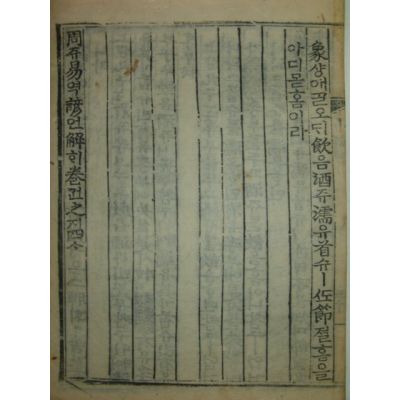 象샹애ᄀᆞᆯ오ᄃᆡ飮음酒쥬濡유首슈ㅣᄯᅩ節졀홈을
아디몯홈이라
周쥬易역諺언解ᄒᆡ卷권之지四ᄉᆞ